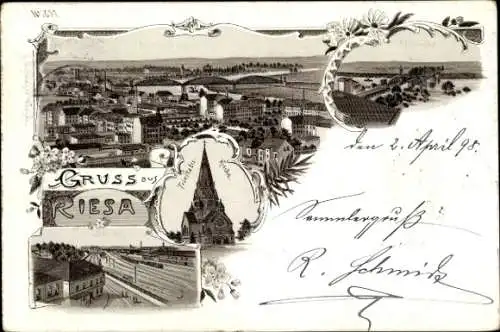 den 2. April 98.
GRUSS aus
RIESA
Trinitatis
Kirche
Sammlergruß
R. Schmidt